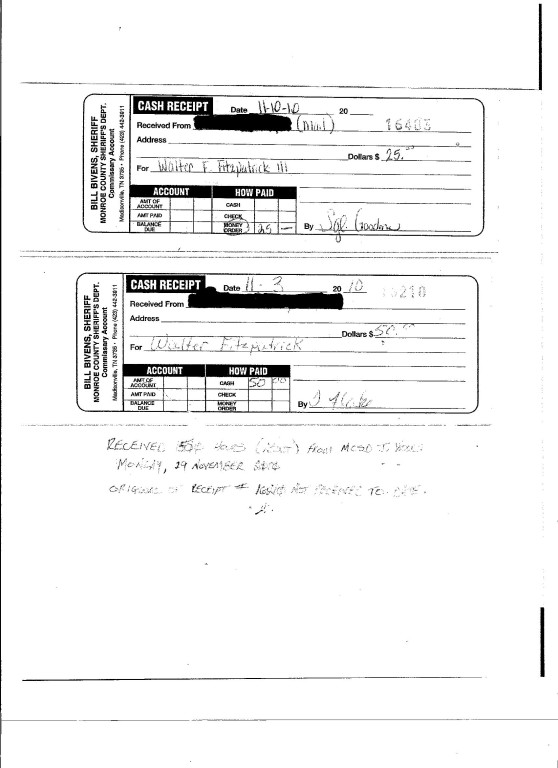 CASH RECEIPT Date 11-10-10 20
Received From (Mail) 16403
Address
Dollars $ 25.00
For Walter F. Fitzpatrick III
ACCOUNT HOW PAID
AMT OF ACCOUNT CASH
AMT PAID CHECK
BALANCE DUE MONEY ORDER 25 —
By Sgt.
BILL BIVENS, SHERIFF
MONROE COUNTY SHERIFF'S DEPT.
Commissary Account
Madisonville, TN 3735 • Phone (423) 442-3911
CASH RECEIPT Date 11-3 20 10
Received From
Address
Dollars $ 50.00
For Walter Fitzpatrick
ACCOUNT HOW PAID
AMT OF ACCOUNT CASH 50 00
AMT PAID CHECK
BALANCE DUE MONEY ORDER
By
BILL BIVENS, SHERIFF
MONROE COUNTY SHERIFF'S DEPT.
Commissary Account
Madisonville, TN 3735 • Phone (423) 442-3911
RECEIVED FROM MCSD
MONDAY, 29 NOVEMBER
OF RECEIPT # NOT RECEIVED TO DATE.